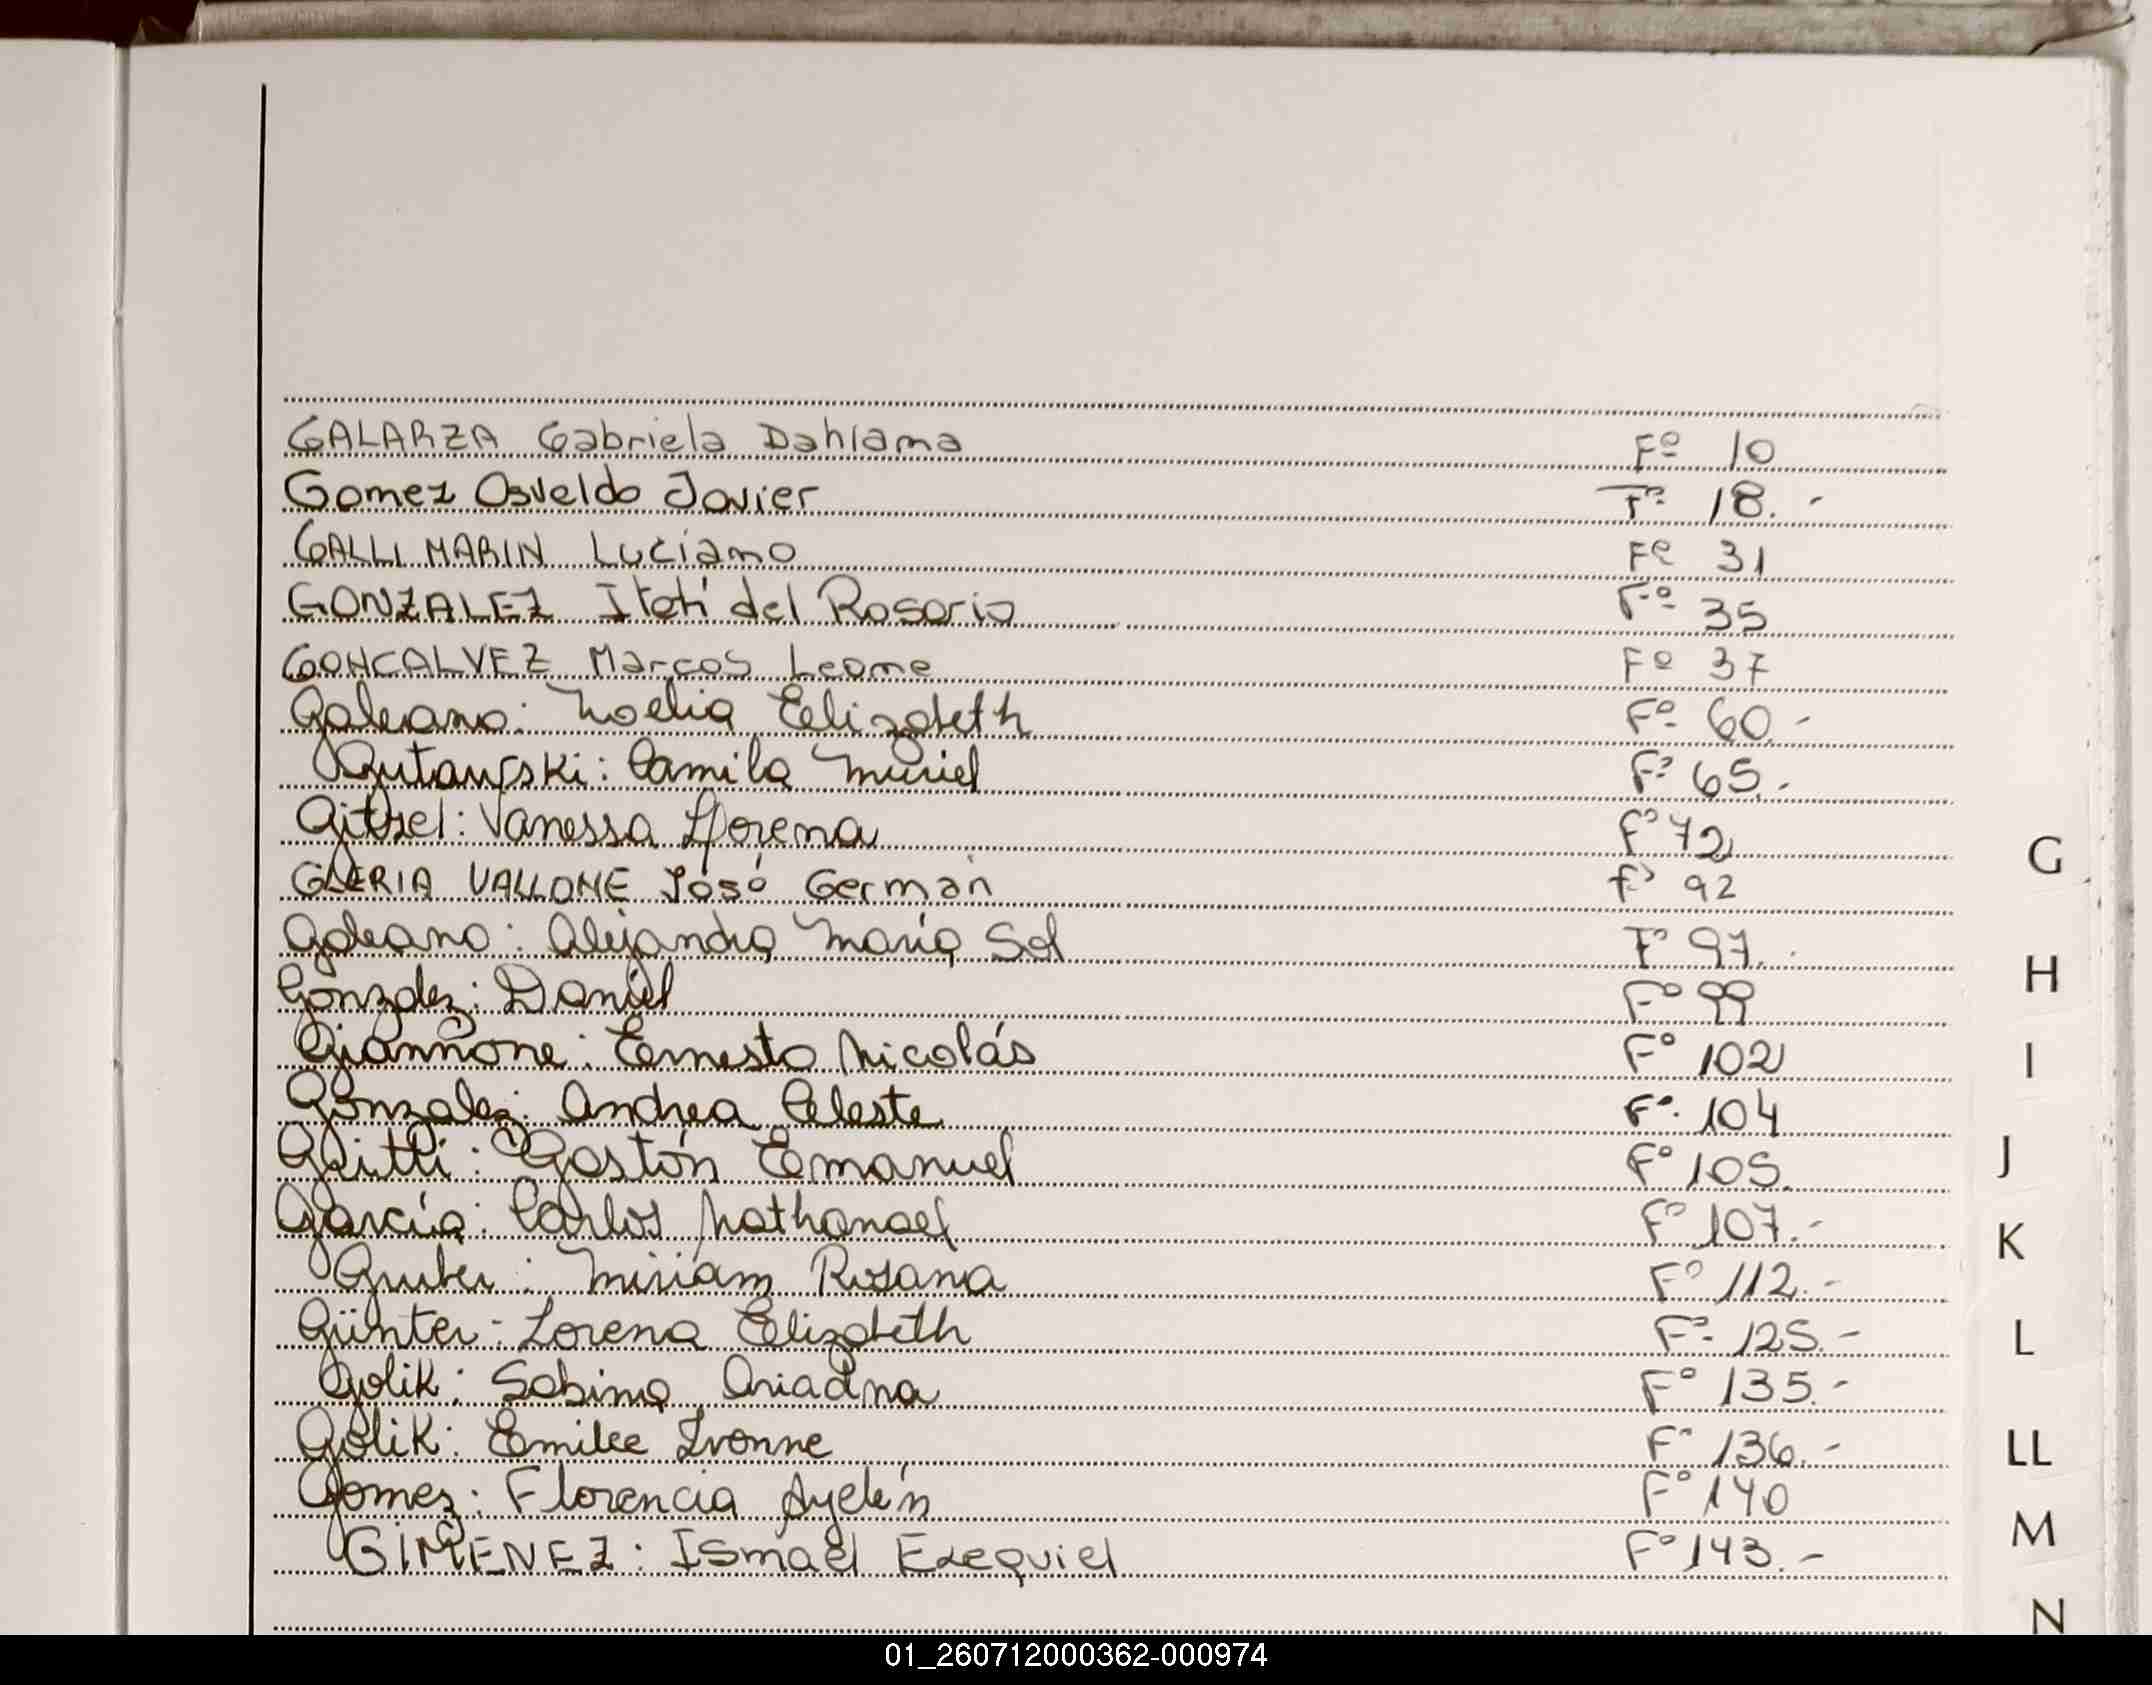 GALARZA Gabriela Dahiama Fº 10
Gomez Osvaldo Javier Fº 18.-
GALLI MARIN Luciano Fº 31
GONZALEZ Itatí del Rosario Fº 35
GONCALVEZ Marcos Leone Fº 37
Galeano: Noelia Elizabeth Fº 60.-
Gutawski: Camila Muriel Fº 65.-
Gitzel: Vanessa Lorena Fº 72
GLERIA VALLONE José Germán Fº 92
Galeano: Alejandra María Sol Fº 97.-
Gonzalez: Daniel Fº 99
Giannone: Ernesto Nicolás Fº 102
Gonzalez: Andrea Celeste Fº 104
Glitti: Gastón Emanuel Fº 105.
García: Carlos Nathanael Fº 107.-
Gruber: Miriam Rosana Fº 112.-
Günter: Lorena Elizabeth Fº 125.-
Golik: Sabina Ariadna Fº 135.-
Golik: Emilce Ivonne Fº 136.-
Gomez: Florencia Ayelén Fº 140
GIMENEZ: Ismael Ezequiel Fº 143.-
G
H
I
J
K
L
LL
M
N
01_260712000362-000974